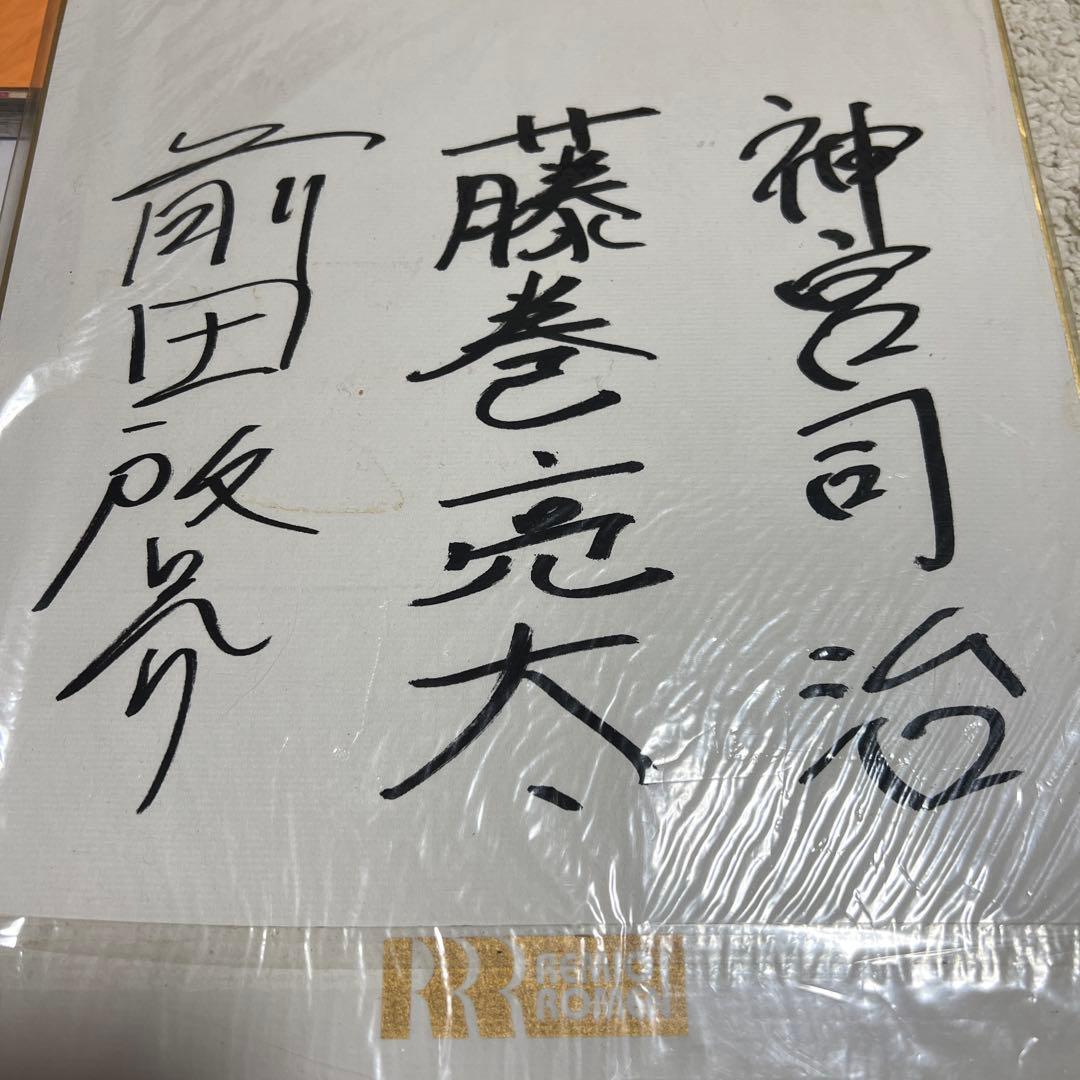 神宮司治
藤巻亮太
前田啓介
RRR REMIOI
ROMEN